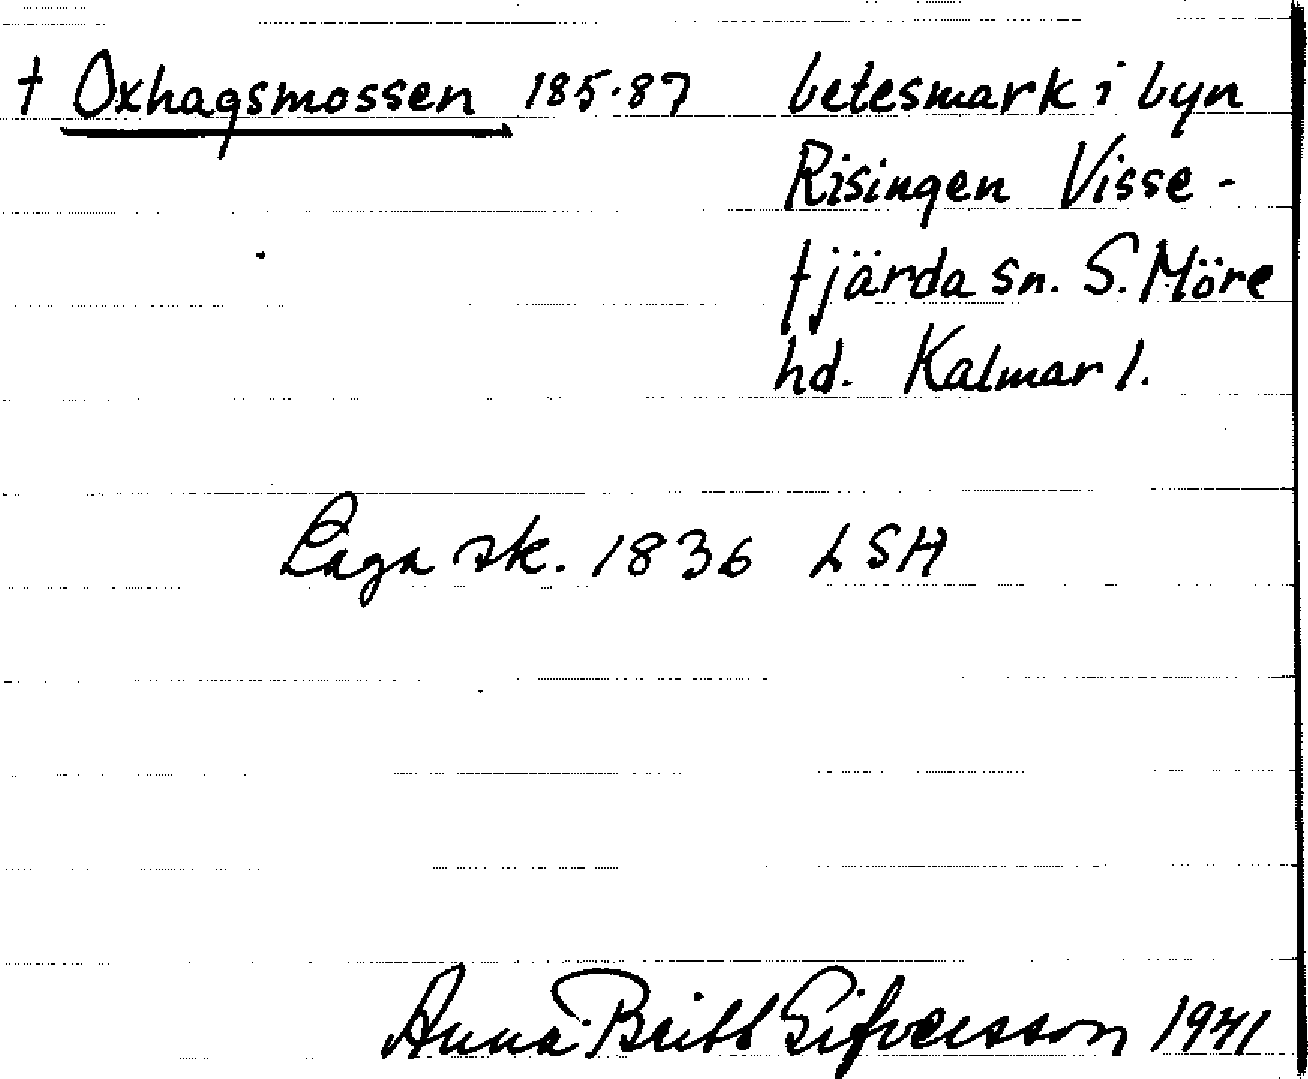 † Oxhagsmossen 185-87 betesmark i byn
Risingen Visse-
fjärda sn. S. Möre
hd. Kalmar l.
Laga sk. 1836 LSH
Anna-Britt Sifversson 1941